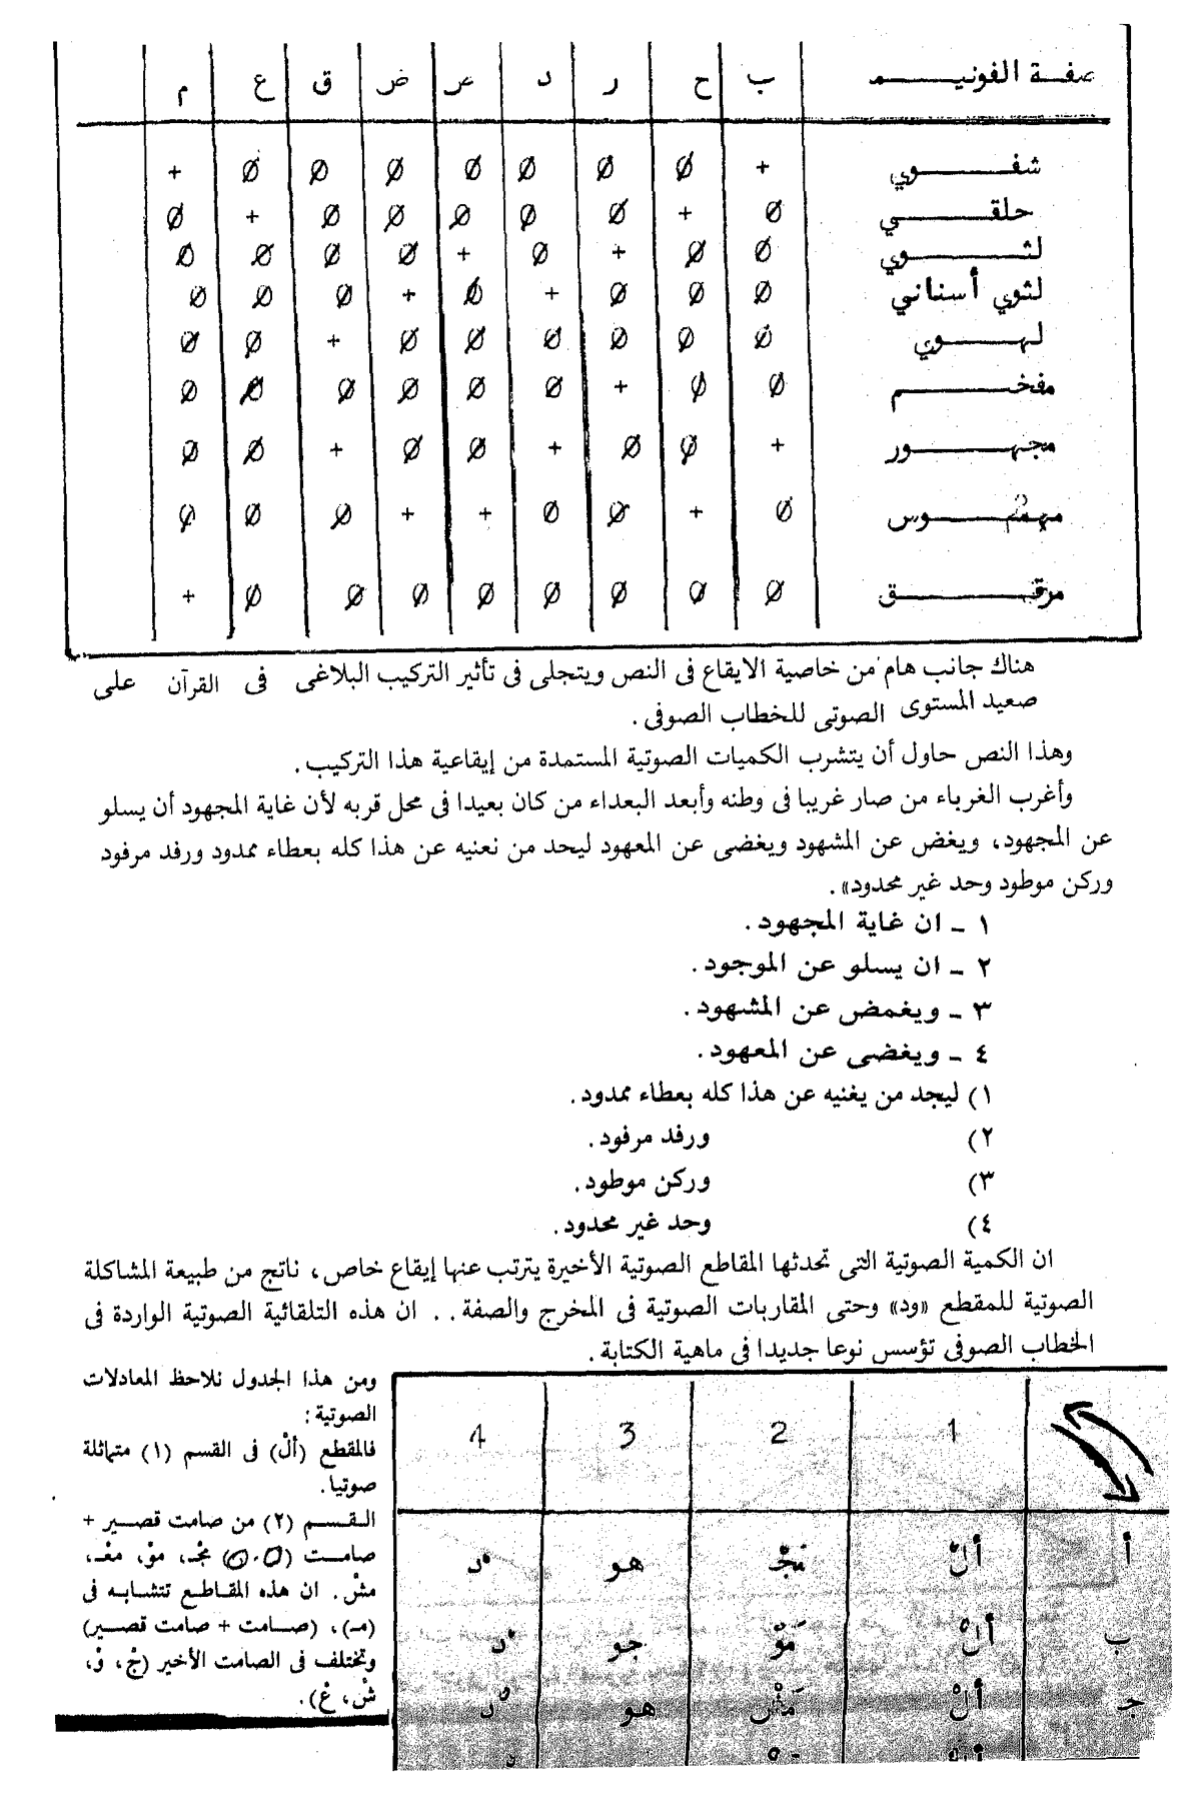 صفة الفونيم ب ح ر د ص ض ق ع م
شفوي + Ø Ø Ø Ø Ø Ø Ø +
حلقي Ø + Ø Ø Ø Ø Ø + Ø
لثوي Ø Ø + Ø + Ø Ø Ø Ø
لثوي أسناني Ø Ø Ø + Ø + Ø Ø Ø
لهوي Ø Ø Ø Ø Ø Ø + Ø Ø
مفخم Ø Ø + Ø Ø Ø Ø Ø Ø
مجهور + Ø Ø + Ø Ø + Ø Ø
مهموس Ø + Ø Ø + + Ø Ø Ø
مرقق Ø Ø Ø Ø Ø Ø Ø Ø +
هناك جانب هام من خاصية الايقاع فى النص ويتجلى فى تأثير التركيب البلاغى فى القرآن على
صعيد المستوى الصوتى للخطاب الصوفى .
وهذا النص حاول أن يتشرب الكميات الصوتية المستمدة من إيقاعية هذا التركيب .
وأغرب الغرباء من صار غريبا فى وطنه وأبعد البعداء من كان بعيدا فى محل قربه لأن غاية المجهود أن يسلو
عن المجهود، ويغض عن المشهود ويغضى عن المعهود ليحد من نعنيه عن هذا كله بعطاء ممدود ورفد مرفود
وركن موطود وحد غير محدود» .
١ ـ ان غاية المجهود .
٢ ـ ان يسلو عن الموجود .
٣ ـ ويغمض عن المشهود .
٤ ـ ويغضى عن المعهود .
١) ليجد من يغنيه عن هذا كله بعطاء ممدود .
٢) ورفد مرفود .
٣) وركن موطود .
٤) وحد غير محدود .
ان الكمية الصوتية التى تحدثها المقاطع الصوتية الأخيرة يترتب عنها إيقاع خاص، ناتج من طبيعة المشاكلة
الصوتية للمقطع «ود» وحتى المقاربات الصوتية فى المخرج والصفة . . ان هذه التلقائية الصوتية الواردة فى
الخطاب الصوفى تؤسس نوعا جديدا فى ماهية الكتابة .
1 2 3 4
أ ألْ مجْ هو دْ
ب ألْ مَوْ جو دْ
جـ ألْ مَشْ هو دْ
ومن هذا الجدول نلاحظ المعادلات
الصوتية :
فالمقطع (ألْ) فى القسم (١) متماثلة
صوتيا .
القسم (٢) من صامت قصير +
صامت مجْـ، موْ، معْـ،
مشْ . ان هذه المقاطع تتشابه فى
(مـ)، (صامت + صامت قصير)
وتختلف فى الصامت الأخير (جْ، وْ،
شْ، عْ) .